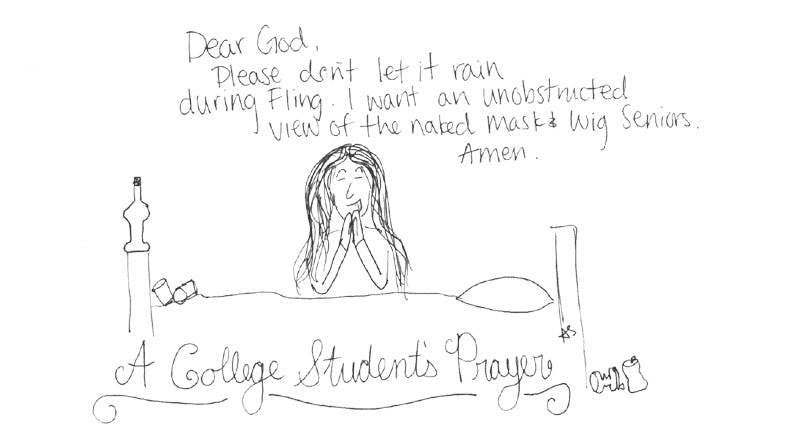 Dear God,
Please don't let it rain
during Fling. I want an unobstructed
view of the naked Mask & Wig Seniors.
Amen.
AS
A College Student's Prayer